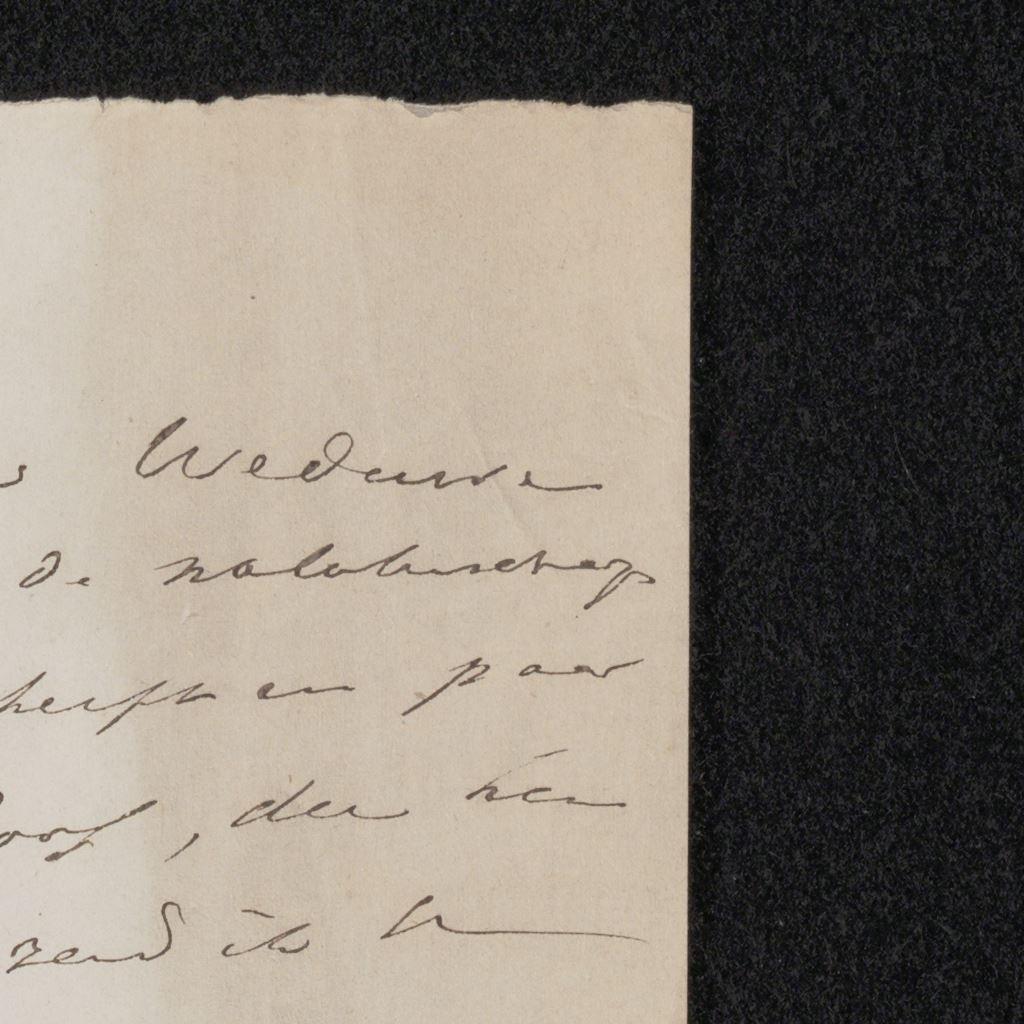 s Weduwe
de nalatenschap
heeft en paar
oorf, der hén
zend ik U